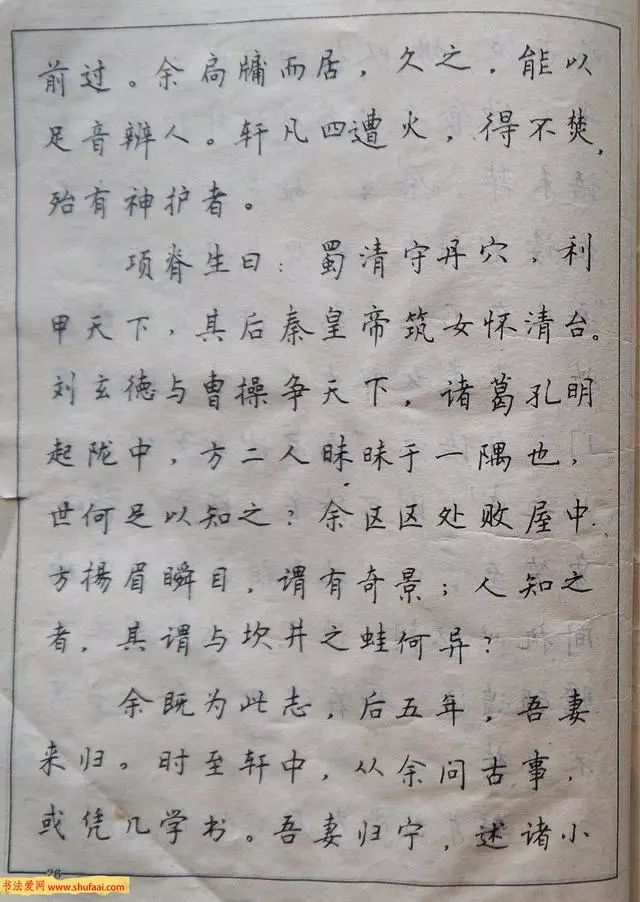 前过。余扃牖而居，久之，能以
足音辨人。轩凡四遭火，得不焚，
殆有神护者。
项脊生曰：蜀清守丹穴，利
甲天下，其后秦皇帝筑女怀清台。
刘玄德与曹操争天下，诸葛孔明
起陇中，方二人昧昧于一隅也，
世何足以知之？余区区处败屋中
方揚眉瞬目，谓有奇景；人知之
者，其谓与坎井之蛙何异？
余既为此志，后五年，吾妻
来归。时至轩中，从余问古事，
或凭几学书。吾妻归宁，述诸小
26
书法爱网 www.shufaai.com